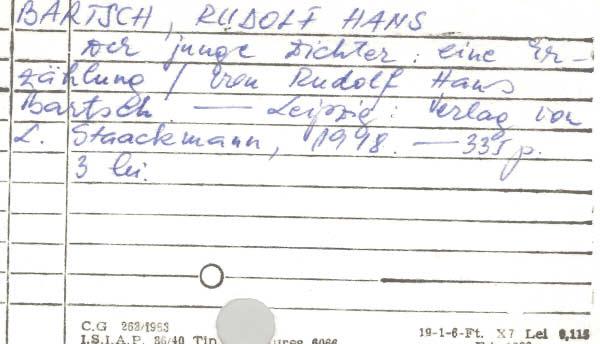 BARTSCH, RUDOLF HANS
Der junge Dichter : eine Er-
zählung / von Rudolf Hans
Bartsch. — Leipzig : Verlag von
L. Staackmann, 1918. — 335 p.
3 lei.
C.G 263/1963
I.S.I.A.P. 36/40 Tip 6066
19-1-6-Ft. X7 Lei 0,115